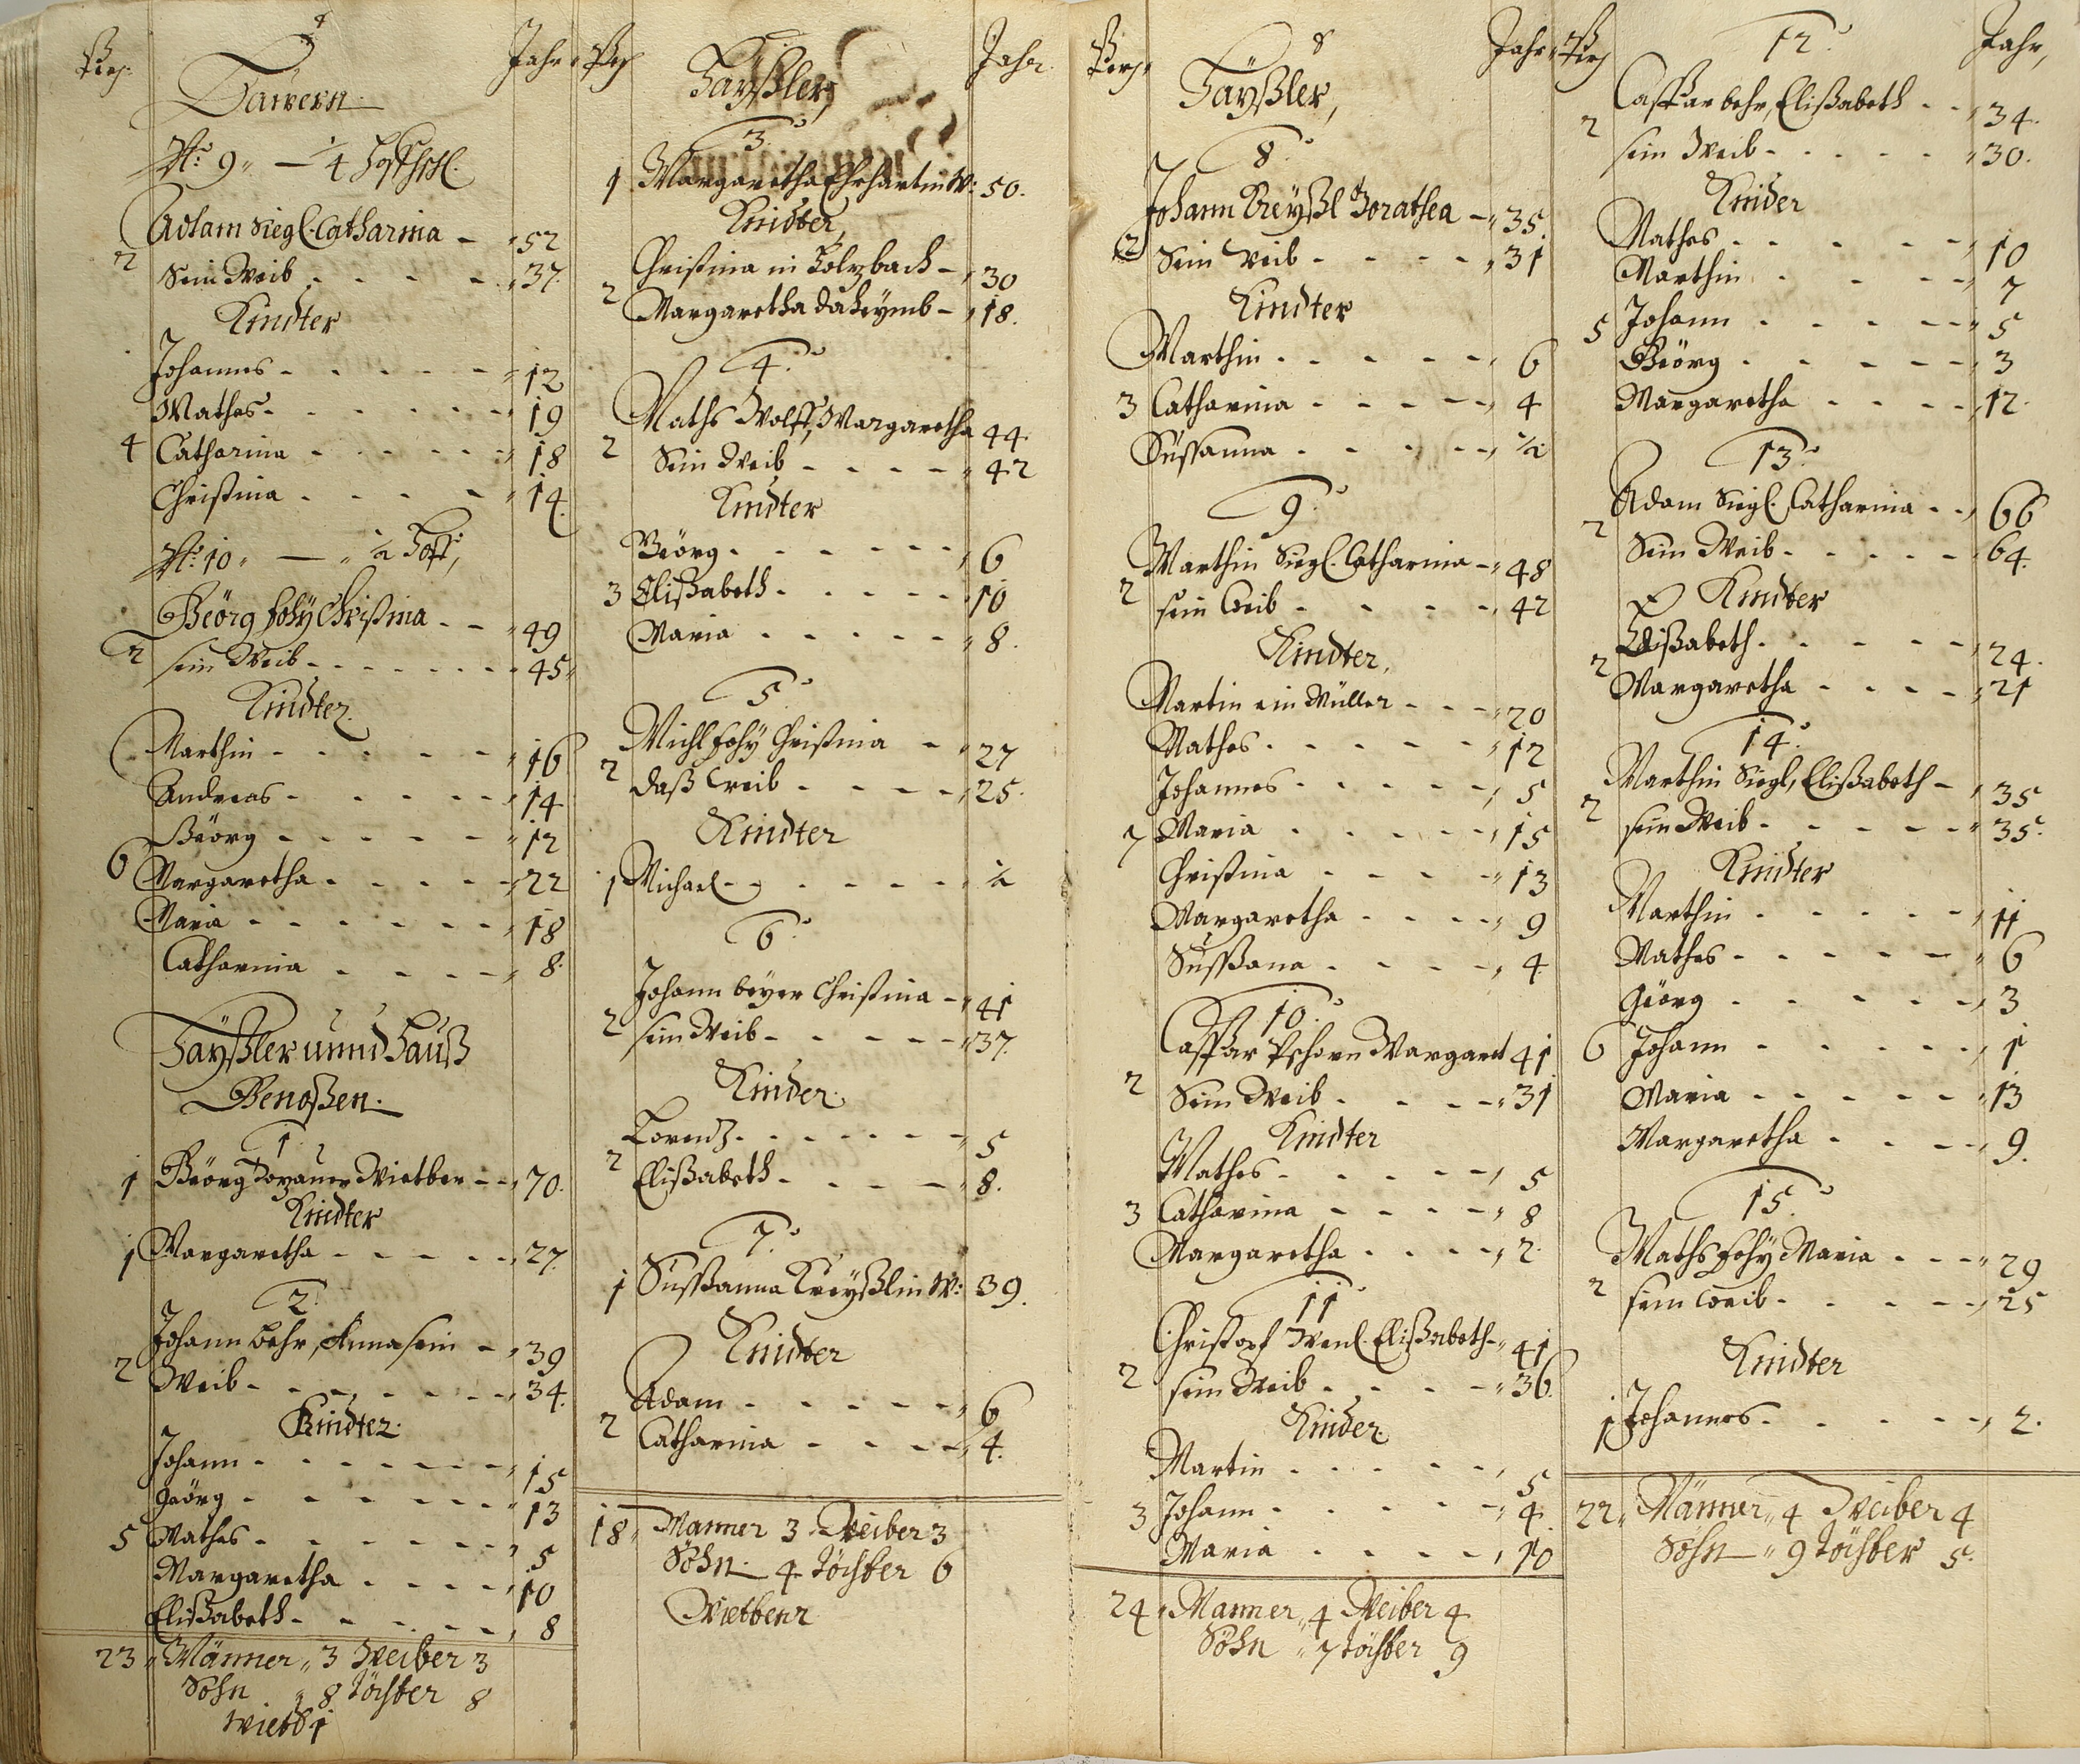 Pers. Jahr
Bawern.
No: 9. — 1/4 Hoff
Adam Siegl. Catharina - 52
2 Sein Weib - - - - 37.
Kindter
Johannes - - - - 12
Mathes - - - - 19
4 Catharina - - - - 18
Christina - - - - 14.
No: 10. — 1/2 Hoff,
Geörg Fohÿ Christina - - 49
2 sein Weib - - - - 45.
Kindter.
Marthin - - - - 16
Andreas - - - - 14
Geörg - - - - 12
6 Margaretha - - - - 22
Maria - - - - 18
Catharina - - - - 8.
Häyßler unnd Hauß
Genoßen.
1.
1 Geörg Wietber - - 70.
Kindter
1 Margaretha - - - - 27.
2.
Johann Behr, Anna sein - 39
2 Weib - - - - 34.
Kindter.
Johann - - - - 15
Geörg - - - - 13
5 Mathes - - - - 5
Margaretha - - - - 10
Elißabeth - - - - 8
23 Männer 3 Weiber 3
Söhn 8 Töchter 8
Wietb 1
Pers Jahr.
Häyßler,
3.
1 Margaretha Ehrhartin W: 50.
Kindter,
Christina in Holzbach - 30
2 Margaretha daheymb - 18.
4.
Maths Wolff, Margaretha 44.
2 Sein Weib - - - - 42
Kindter
Geörg - - - - 6
3 Elißabeth - - - - 10
Maria - - - - 8.
5.
Michl Fohÿ Christina - 27
2 daß Weib - - - - 25.
Kindter
1 Michael - - - - 1/2
6.
Johann Beyer Christina - 41
2 sein Weib - - - - 37.
Kinder.
Lorentz - - - - 5
2 Elißabeth - - - - 8.
7.
1 Sußanna Kreyßlin W: 39.
Kindter
Adam - - - - 6
2 Catharina - - - - 4.
18 Manner 3 Weiber 3
Söhn 4 Töchter 6
Wietbenr
Pers. Jahr
Häyßler,
8.
Johann Creyßl Dorathea - 35.
2 Sein Weib - - - - 31
Kindter
Marthin - - - - 6
3 Catharina - - - - 4
Sußanna - - - - 1/2
9.
Marthin Siegl. Catharina - 48
2 sein Weib - - - - 42
Kindter,
Martin ein Müller - - - 20
Mathes - - - - 12
Johannes - - - - 5
7 Maria - - - - 15
Christina - - - - 13
Margaretha - - - - 9
Sußana - - - - 4
10.
Caspar Pschorn Margaret 41
2 Sein Weib - - - - 31
Kindter
Mathes - - - - 5
3 Catharina - - - - 8
Margaretha - - - - 2.
11.
Christopf Wenl. Elißabeth - 41
2 sein Weib - - - - 36.
Kinder.
Martin - - - - 5
3 Johann - - - - 4.
Maria - - - - 10
24 Manner 4 Weiber 4
Söhn 7 Töchter 9
Pers Jahr,
12.
Caspar behr, Elißabeth - - 34.
2 sein Weib - - - - 30.
Kinder
Mathes - - - - 10
Marthin - - - - 7
5 Johann - - - - 5
Geörg - - - - 3
Margaretha - - - - 12
13.
Adam Siegl. Catharina - - 66
2 Sein Weib - - - - 64.
Kindter
Elißabeth - - - - 24.
2 Margaretha - - - - 21
14.
Marthin Siegl, Elißabeth - 35
2 sein Weib - - - - 35.
Kindter
Marthin - - - - 11
Mathes - - - - 6
Geörg - - - - 3
6 Johann - - - - 1
Maria - - - - 13
Margaretha - - - - 9.
15.
Maths Fohÿ Maria - - - 29
2 sein Weib - - - - 25
Kindter
1 Johannes - - - - 2.
22 Männer 4 Weiber 4
Söhn 9 Töchter 5.